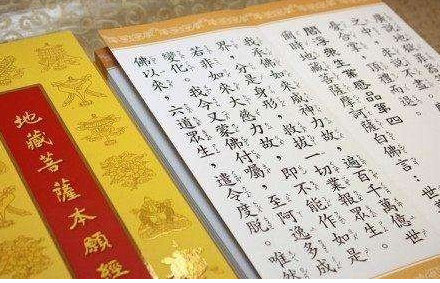 地藏菩薩本願經
閻浮眾生業感品第四
爾時地藏菩薩摩訶薩白佛言，世
我承佛如來威神力故，遍百千萬億世
界，分是身形，救拔一切業報眾生。
若非如來大慈力故，即不能作如是
變化。我今又蒙佛付囑，至阿逸多成
佛以來，六道眾生，遣令度脫。唯然